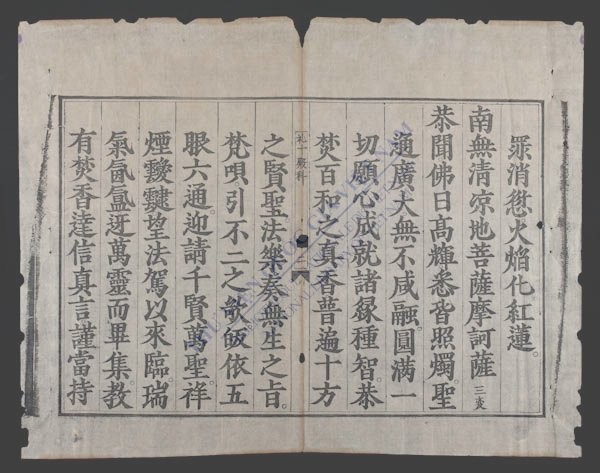 罪消愆火焰化紅蓮。
南無清凉地菩薩摩訶薩 三
恭聞佛日髙輝悉皆照燭。聖
通廣大無不咸融。圓滿一
切願心成就諸緣種智。恭
焚百和之真香普遍十方
礼十殿科
二
之賢聖法樂奏無生之㫖。
梵唄引不二之歌皈依五
眼六通。迎請千賢萬聖。祥
煙靉靆望法駕以來臨。瑞
氣氤氳迓萬靈而畢集。教
有焚香達信真言謹當持